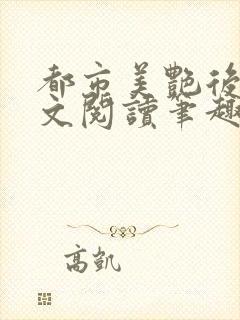 都市美艷後
文閱讀筆趣
高凱